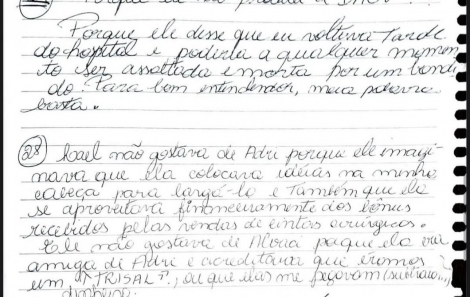 Porque ele disse que eu voltava tarde
do hospital e poderia a qualquer momen
to ser assaltada e morta por um bandi
do. Para bom entendedor, meia palavra
basta.
28) Kael não gostava de Adri porque ele imagi
nava que ela colocava idéias na minha
cabeça para largá-lo e também que ela
se aproveitava financeiramente dos bônus
recebidos pelas vendas de cintas cirúrgicas.
Ele não gostava de porque ela era
amiga di Adri e acreditava que éramos
um "TRISAL", ou que elas me pegavam (subtraíam)
dinheiro.